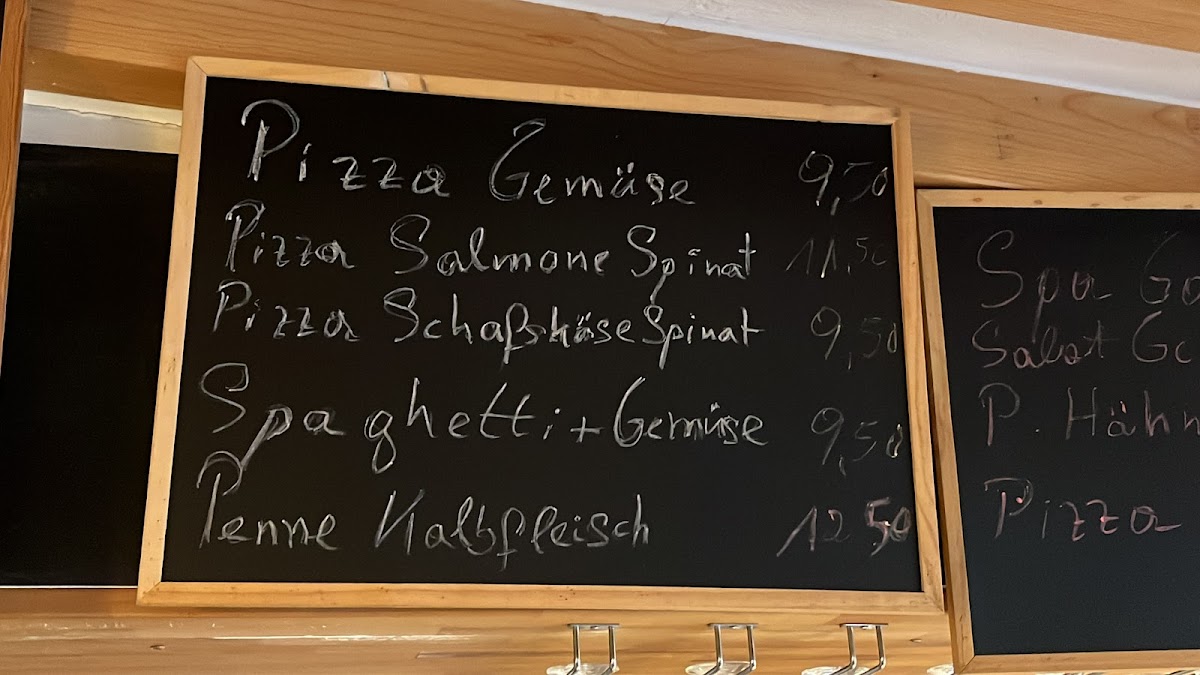 Pizza Gemüse 9,50
Pizza Salmone Spinat 11,50
Pizza Schafskäse Spinat 9,50
Spaghetti + Gemüse 9,50
Penne Kalbfleisch 12 50
Spa
Salat
P.
Pizza